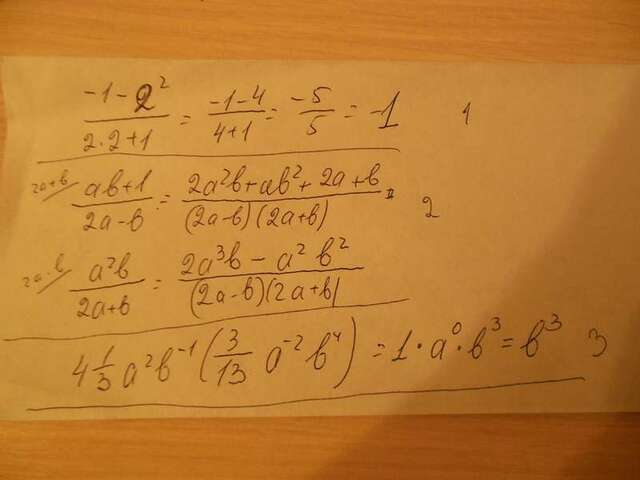 (-1-2²)/(2·2+1) = (-1-4)/(4+1) = -5/5 = -1 1
2a+b/ (ab+1)/(2a-b) = (2a²b+ab²+2a+b)/((2a-b)(2a+b)) = 2
2a-b/ (a²b)/(2a+b) = (2a³b-a²b²)/((2a-b)(2a+b))
4 1/3 a²b⁻¹(3/13 a⁻²b⁴) = 1·a⁰·b³ = b³ 3